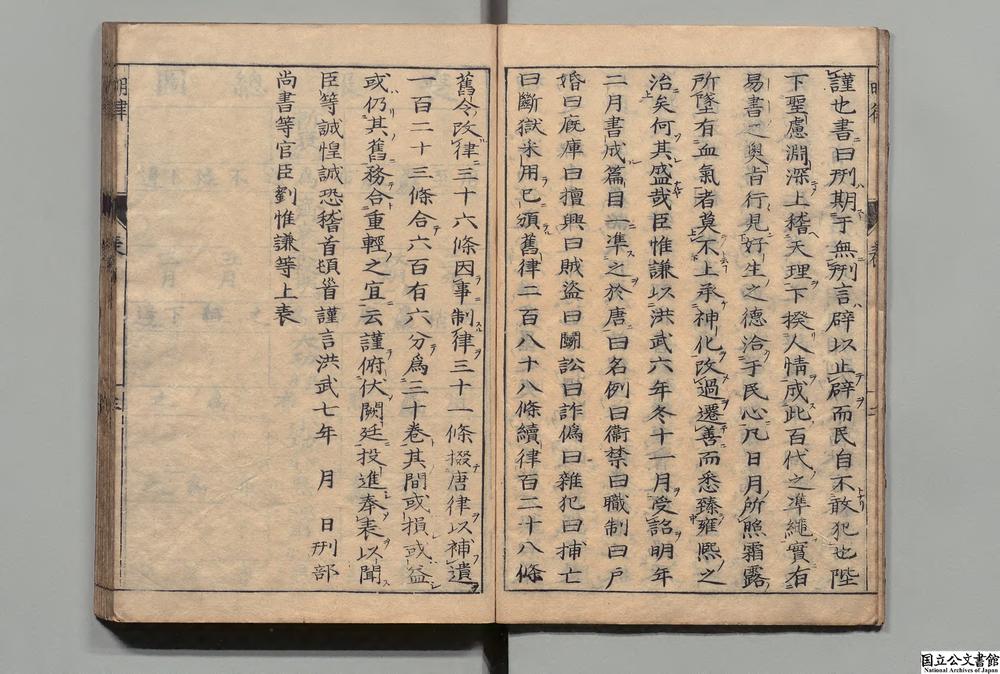 謹也書曰刑期于無刑言辟以止辟而民自不敢犯也陛
下聖慮淵深上稽天理下揆人情成此百代之凖繩實有
易書之奥旨行見好生之德洽于民心凡日月所照霜露
所墜有血氣者莫不上承神化改過遷善而悉臻雍熙之
治矣何其盛哉臣惟謙以洪武六年冬十一月受詔明年
二月書成篇目一凖之於唐曰名例曰衞禁曰職制曰戶
婚曰廐庫曰擅興曰賊盜曰鬭訟曰詐僞曰雜犯曰捕亡
曰斷獄采用已頒舊律二百八十八條續律百二十八條
舊令改律三十六條因事制律三十一條掇唐律以補遺
一百二十三條合六百有六分爲三十卷其間或損或益
或仍其舊務合重輕之宜云謹俯伏闕廷投進奉表以聞
臣等誠惶誠恐稽首頓首謹言洪武七年　月　日刑部
尚書等官臣劉惟謙等上表
明律
国立公文書館
National Archives of Japan